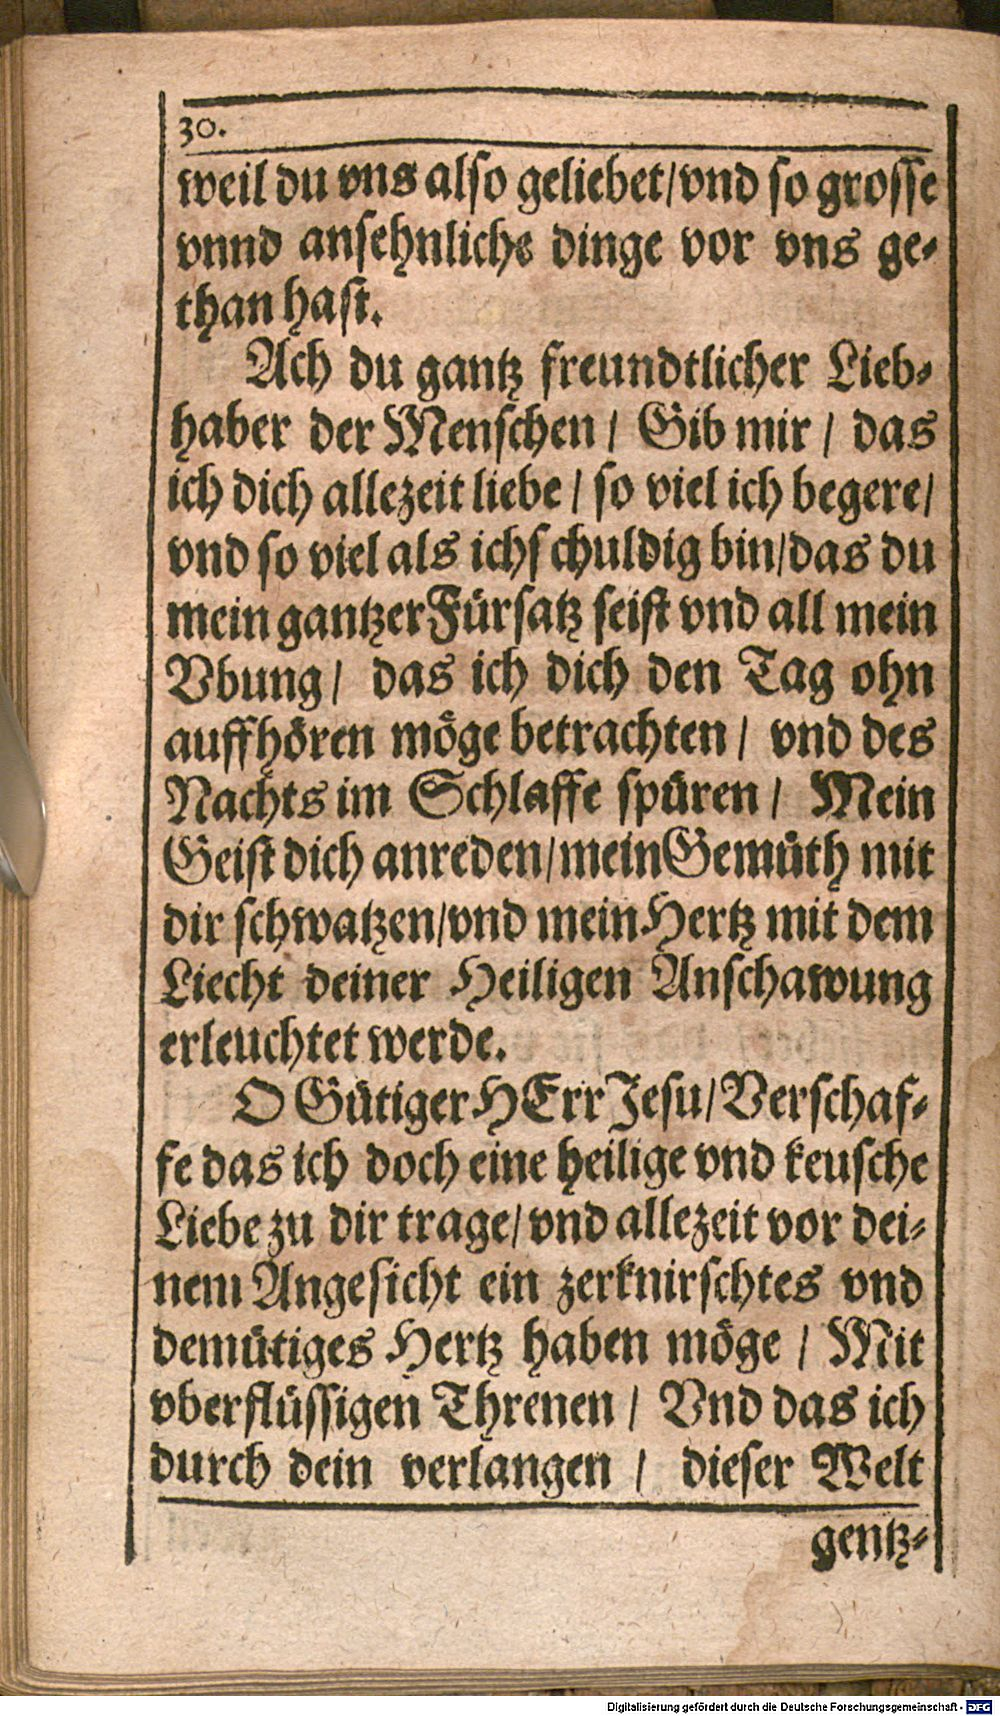 30.
weil du vns also geliebet/vnd so grosse
vnnd ansehnliche dinge vor vns ge-
than hast.
Ach du gantz freundtlicher Lieb-
haber der Menschen / Gib mir / das
ich dich allezeit liebe / so viel ich begere/
vnd so viel als ich schuldig bin/das du
mein gantzer Fürsatz seist vnd all mein
Vbung/ das ich dich den Tag ohn
auffhören möge betrachten / vnd des
Nachts im Schlaffe spüren / Mein
Geist dich anreden/mein Gemüth mit
dir schwatzen/vnd mein Hertz mit dem
Liecht deiner Heiligen Anschawung
erleuchtet werde.
O Gütiger HErr Jesu/Verschaf-
fe das ich doch eine heilige vnd keusche
Liebe zu dir trage/vnd allezeit vor dei-
nem Angesicht ein zerknirschtes vnd
demütiges Hertz haben möge / Mit
vberflüssigen Threnen / Vnd das ich
durch dein verlangen / dieser Welt
gentz-
Digitalisierung gefördert durch die Deutsche Forschungsgemeinschaft - DFG